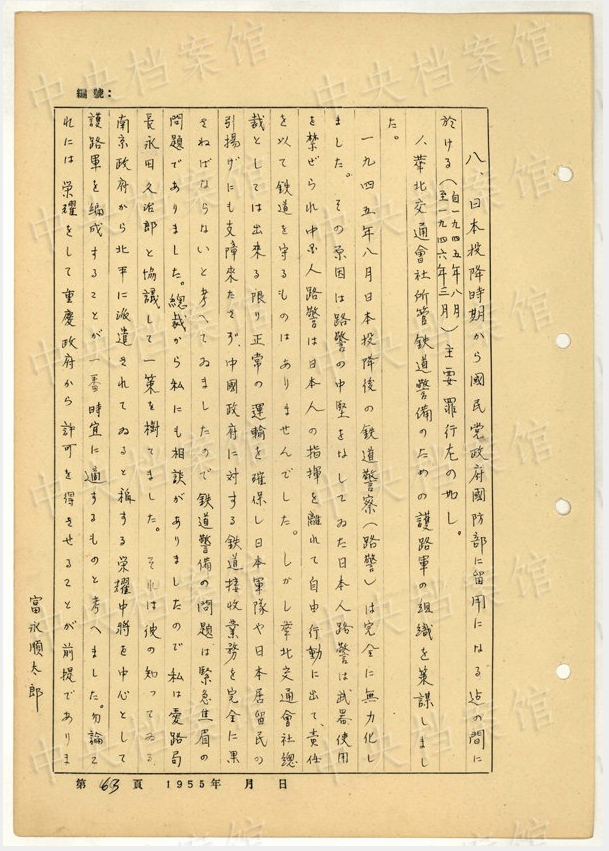 編號：
八、日本投降時期から國民党政府國防部に留用になる迄の間に
於ける（自一九四五年八月至一九四六年三月）主要罪行左の如し。
1、華北交通會社所管鉄道警備のための護路軍の組織を策謀しまし
た。
一九四五年八月日本投降後の鉄道警察（路警）は完全に無力化し
ました。その原因は路警の中堅をなしてゐた日本人路警は武器使用
を禁ぜられ中国人路警は日本人の指揮を離れて自由行動に出て、責任
を以て鉄道を守るものはありませんでした。しかし華北交通會社總
裁としては出来る限り正常の運輸を確保し日本軍隊や日本居留民の
引揚げにも支障來たさず、中國政府に対する鉄道接收業務を完全に果
さねばならないと考へてゐましたので鉄道警備の問題は緊急焦眉の
問題でありました。總裁から私にも相談がありましたので私は愛路局
長永田久治郎と協議して一策を樹てました。それは彼の知ってゐる
南京政府から北平に派遣されてゐると稱する栄耀中將を中心として
護路軍を編成することが一番時宜に適するものと考へました。勿論こ
れには栄耀をして重慶政府から許可を得させることが前提でありま
富永順太郎
第 63 頁 1955年 月 日
中央档案馆